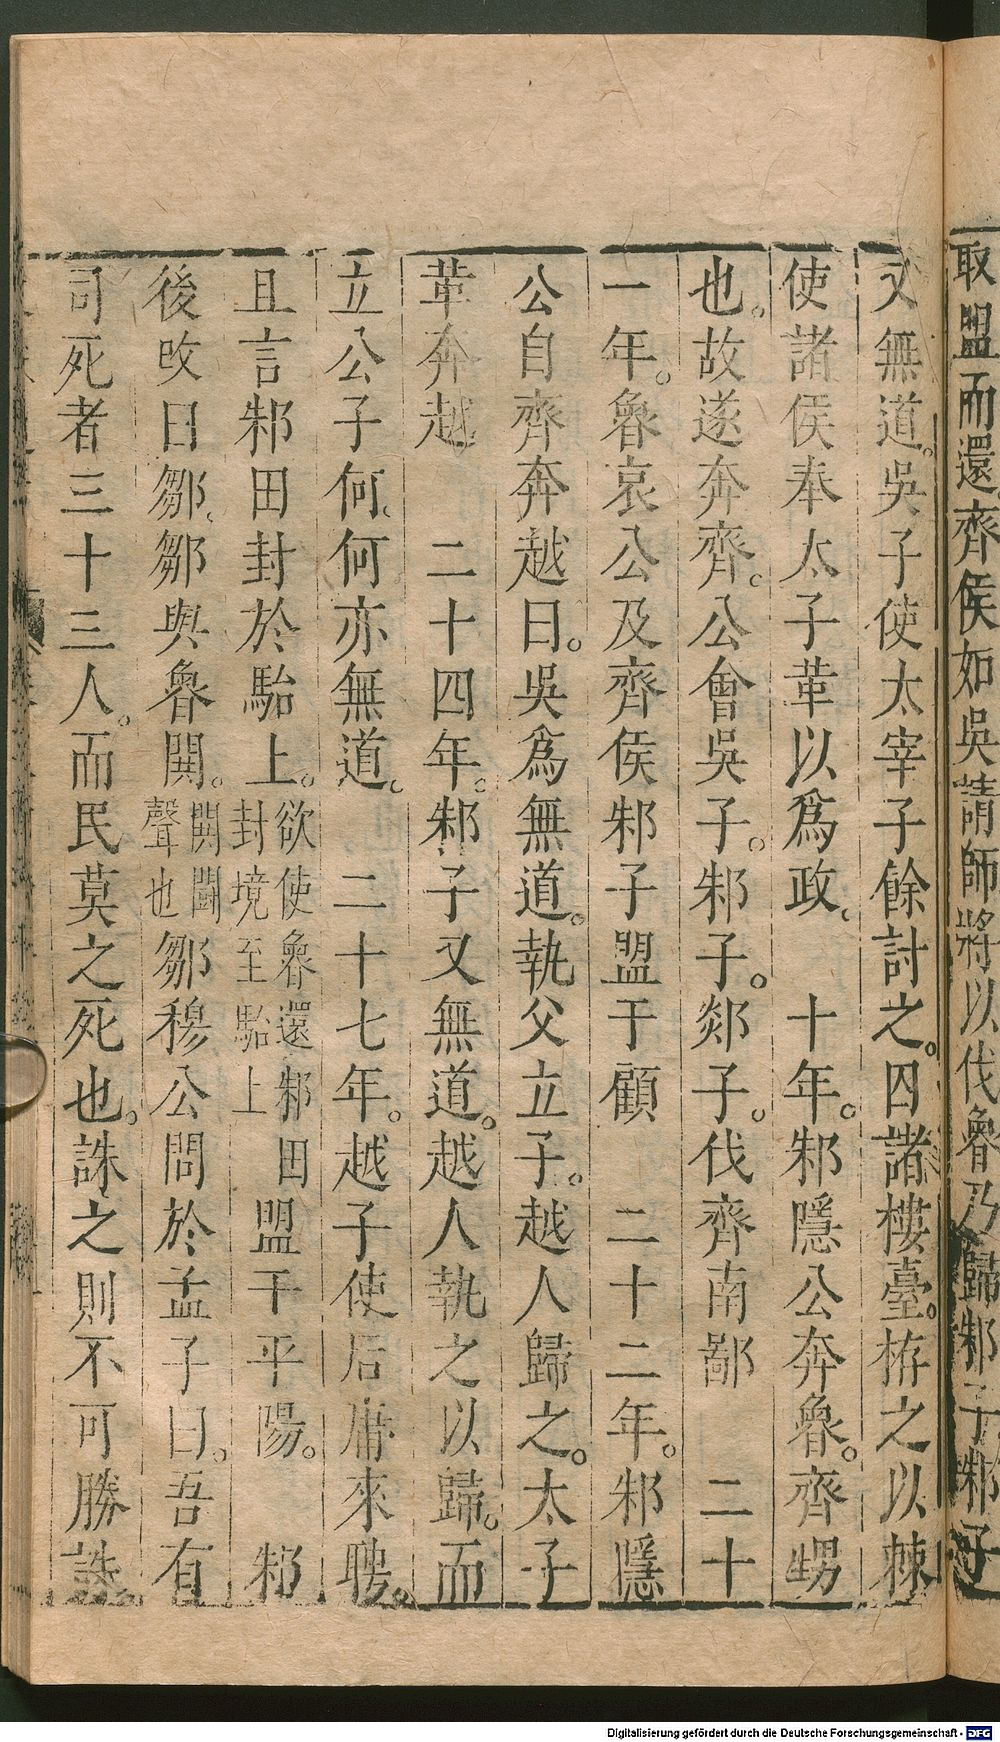 取盟而還齊侯如吳請師將以伐魯乃歸邾子邾子
又無道。吳子使太宰子餘討之。囚諸樓臺。栫之以棘
使諸侯奉太子革以爲政。　十年。邾隱公奔魯。齊甥
也。故遂奔齊。公會吳子。邾子。郯子。伐齊南鄙　二十
一年。魯哀公及齊侯邾子盟于顧　二十二年。邾隱
公自齊奔越曰。吳爲無道。執父立子。越人歸之。太子
革奔越　二十四年。邾子又無道。越人執之以歸。而
立公子何。何亦無道。　二十七年。越子使后庸來聘。
且言邾田封於駘上。欲使魯還邾田封境至駘上　盟于平陽。　邾
後改曰鄒。鄒與魯鬨。鬨鬪聲也　鄒穆公問於孟子曰。吾有
司死者三十三人。而民莫之死也。誅之則不可勝誅。
Digitalisierung gefördert durch die Deutsche Forschungsgemeinschaft - DFG